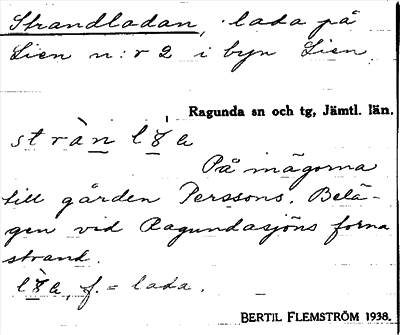 Strandladan, lada på
Lien n:r 2 i byn Lien
Ragunda sn och tg, Jämtl. län.
På mägorna
till gården Perssons. Belä-
gen vid Ragundasjöns forna
strand.
f. = lada.
BERTIL FLEMSTRÖM 1938.